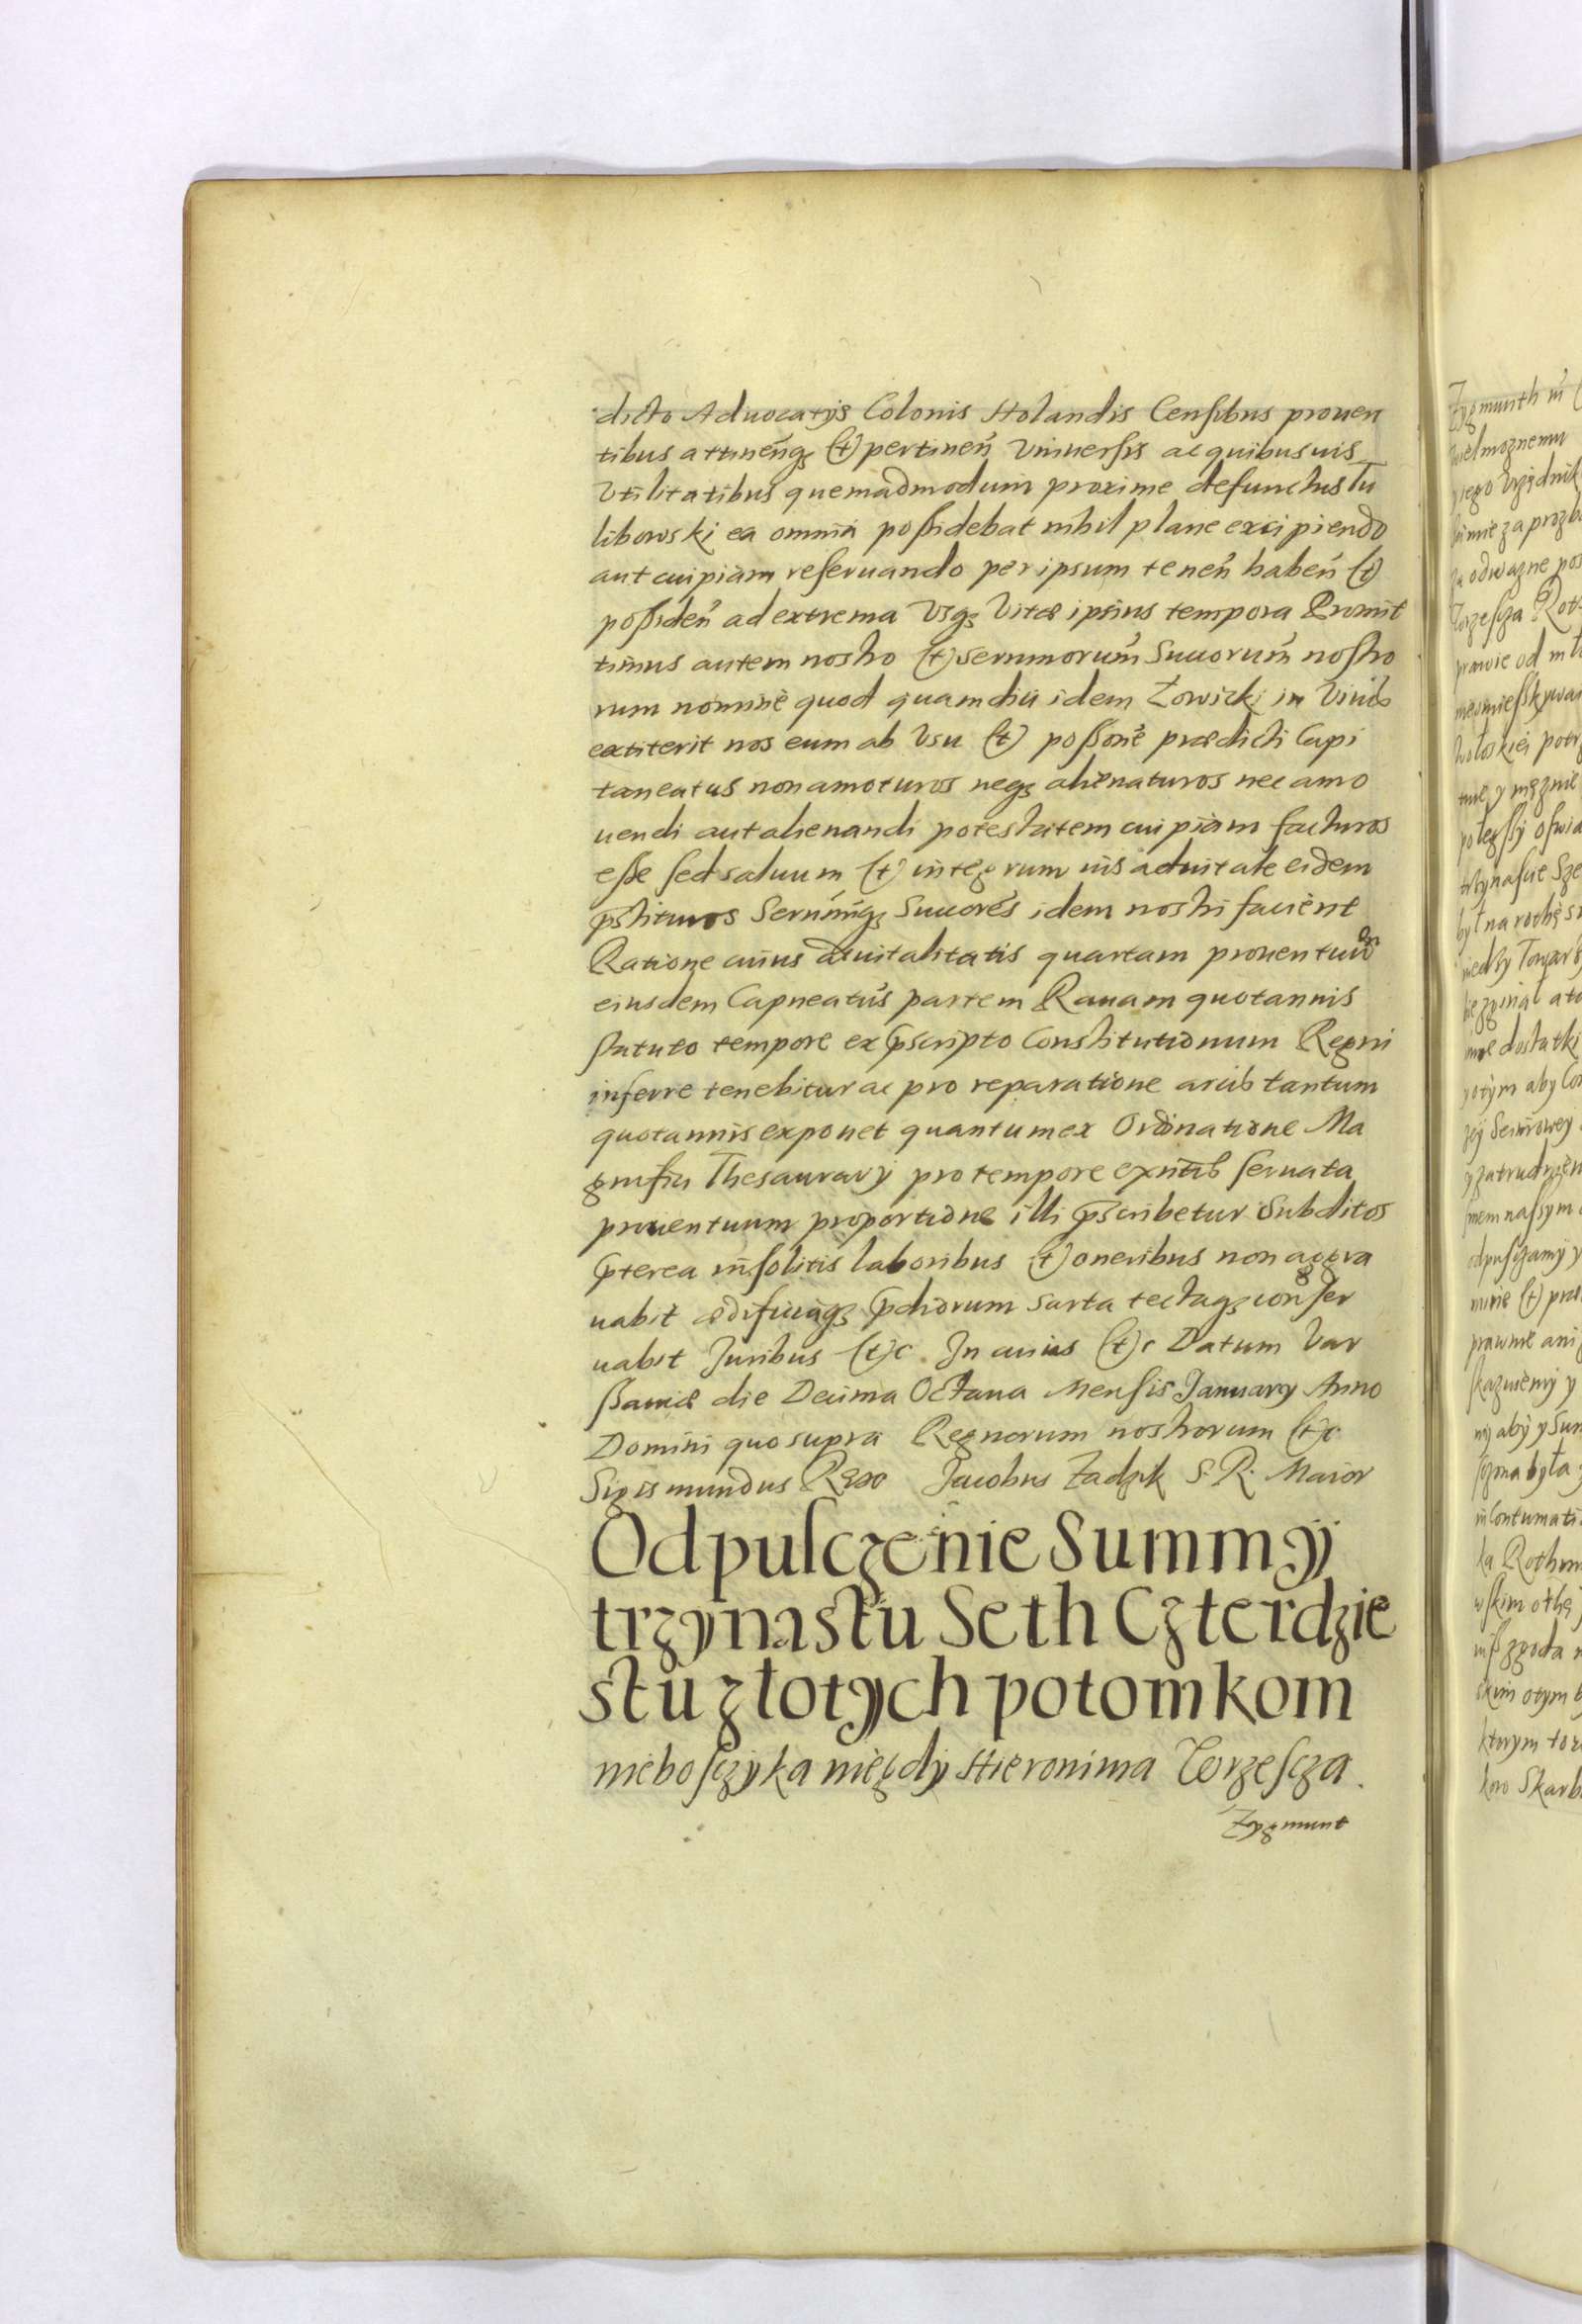 dicto Aduocatijs Colonis Holandis Censibus prouen
tibus attineñq; (et) pertineñ Vniuersis ac quibusuis
Vtilitatibus quemadmodum proxime defunctus Tu
libowski ea omnia possidebat nihil plane excipiendo
aut cuipiam reseruando per ipsum teneñ habeñ (et)
possideñ ad extrema Vsq; Vitæ ipsius tempora Promit
timus autem nostro (et) Sermmorum̃ Succorum̃ nostro
rum nomine quod quamdiu idem Zowicki in Viuis
extiterit nos eum ab Vsu (et) possone prædicti Capi
taneatus non amoturos neq; alienaturos nec amo
uendi aut alienandi potestatem cuipiam facturos
esse sed saluum (et) integrum ius aduitale eidem
pr̃stituros Sermmiq; Succores idem nostri facient
Ratione cuius aduitalitatis quartam prouentuum
eiusdem Capneatus partem Rauam quotannis
statuto tempore ex pr̃scripto Constitutionum Regni
inferre tenebitur ac pro reparatione arcis tantum
quotannis exponet quantum ex Ordinatione Ma
gnifici Thesaurarij pro tempore exñtis seruata
prouentuum proportione illi pr̃scribetur Subditos
pr̃terea insolitis laboribus (et) oneribus non aggra
uabit ædificiaq; pr̃diorum sarta tectaq; conser
uabit Juribus (et)c. In cuius (et)c Datum Var
ssauiæ die Decima Octaua Mensis January Anno
Domini quo supra Regnorum nostrorum (et)c
Sigismundus Rex Jacobus Zadzik S. R. Maior
Odpusczenie Summÿ
trzynastu Seth Czterdzie
stu złotych potomkom
nieboszyka niegdy Hieronima Torzescza.
Zygmunt